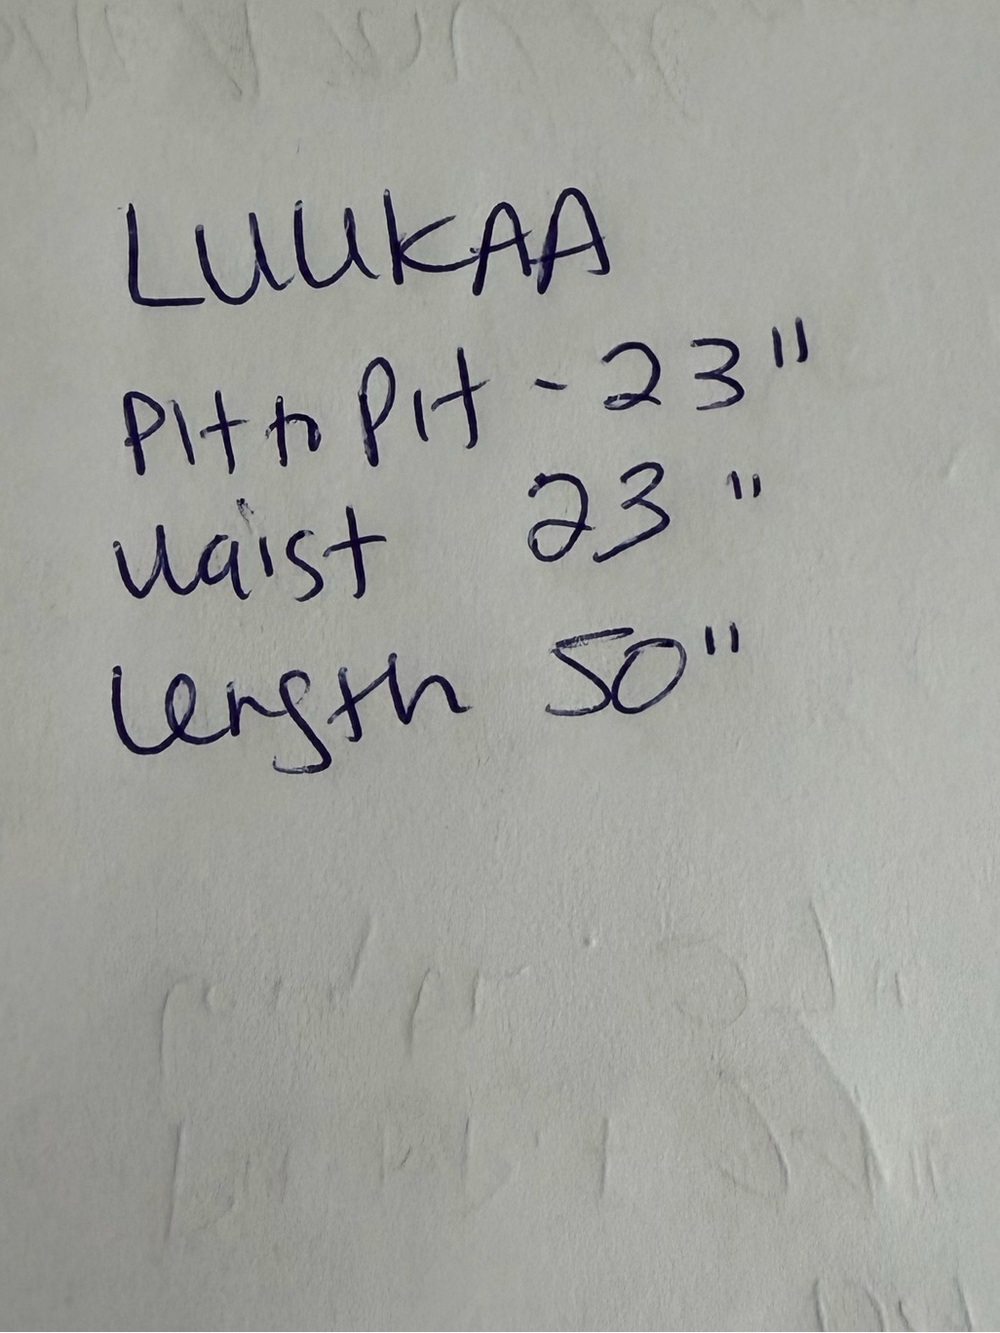 LUUKAA
Pit to Pit - 23"
Waist 23"
Length 50"